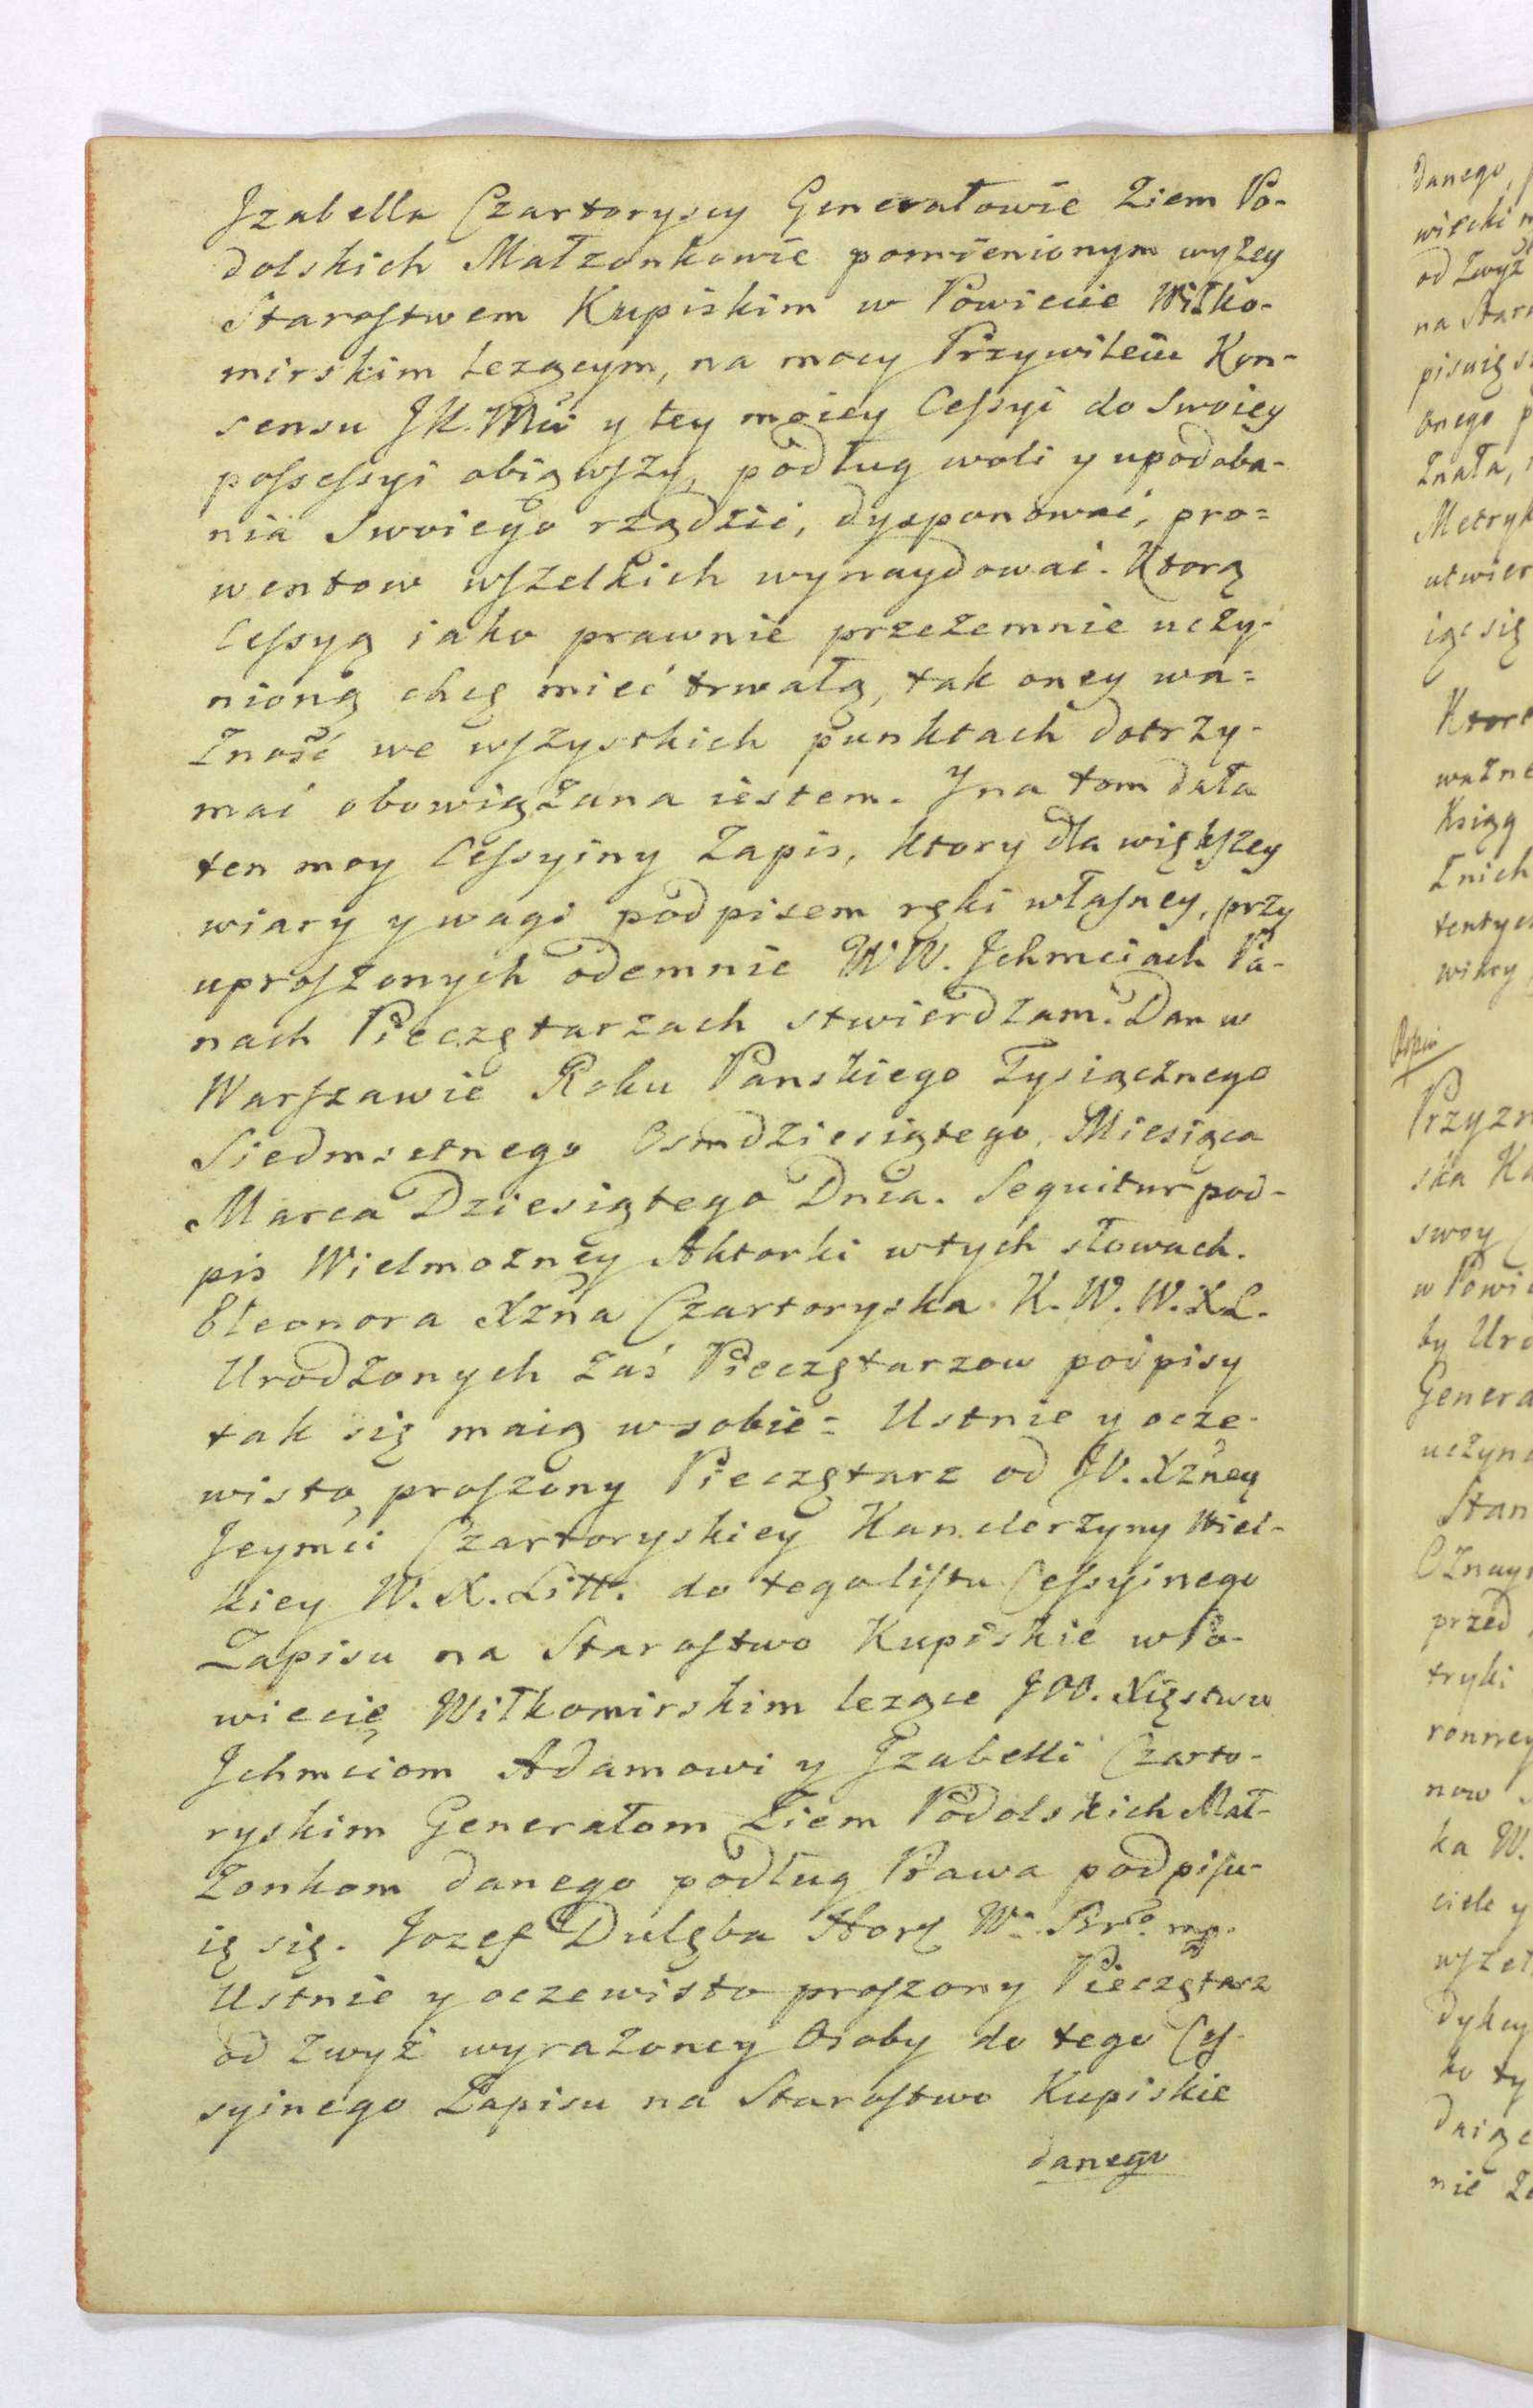 Jzabella Czartoryscy Generałowie Ziem Po-
dolskich Małzonkowie pomienionym wyżey
Starostwem Kupiskim w Powiecie Wiłko-
mirskim lezącym, na mocy Przywileiu Kon-
sensu JK. Mći y tey moiey Cessyi do Swoiey
possessyi obiąwszy, podług woli y upodoba-
nia Swoiego rządzić, dysponować, pro=
wentow wszelkich wynaydować. Ktorą
Cessyą iako prawnie przezemnie uczy-
nioną chcę mieć trwałą, tak oney wa=
żność we wszystkich punktach dotrzy-
mać obowiązana iestem. J na tom dała
ten moy Cessyiny Zapis, ktory dla większey
wiary y wagi podpisem ręki własney, przy
uproszonych odemnie WW. Jchmciach Pa-
nach Pieczętarzach stwierdzam. Dan w
Warszawie Roku Panskiego Tysiącznego
Siedmsetnego Osmdziesiątego, Miesiąca
Marca Dziesiątego Dnia. Sequitur pod-
pis Wielmożney Aktorki w tych słowach.
Eleonora Xżna Czartoryska K. W. W. X L.
Urodzonych zaś Pieczętarzow podpisy
tak się maią w sobie = Ustnie y ocze-
wisto proszony Pieczętarz od JO. Xżney
Jeymći Czartoryskiey Kanclerzyny Wiel-
kiey W. X. Litt. do tego listu Cessyinego
Zapisu na Starostwo Kupiskie w Po-
wiecie Wiłkomirskim lezące JOO. Xięstwu
Jchmciom Adamowi y Jzabelli Czarto-
ryskim Generałom Ziem Podolskich Mał-
żonkom danego podług Prawa podpisu-
ię się. Jozef Dulęba
Ustnie y oczewisto proszony Pieczętarz
od zwyż wyrażoney Osoby do tego Ces-
syinego Zapisu na Starostwo Kupiskie
danego